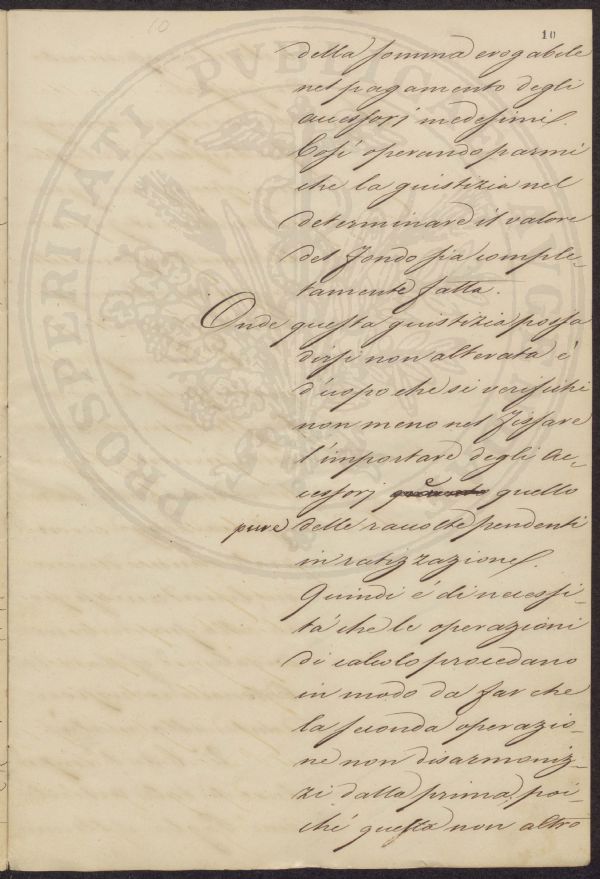 10
10
della somma erogabile
nel pagamento degli
accessorj medesimi.
Così operando parmi
che la giustizia nel
determinare il valore
del Fondo sia comple-
tamente fatta.
Onde questa giustizia possa
dirsi non alterata é
d'uopo che si verifichi
non meno nel fissare
l'importare degli Ac-
cessorj e quello
pure delle raccolte pendenti
in ratizzazione.
Quindi é di necessi-
tá che le operazioni
di calcolo procedano
in modo da far che
la seconda operazio-
ne non disarmoniz-
zi dalla prima, poi-
ché questa non altro
PROSPERITATI PVBLICAE